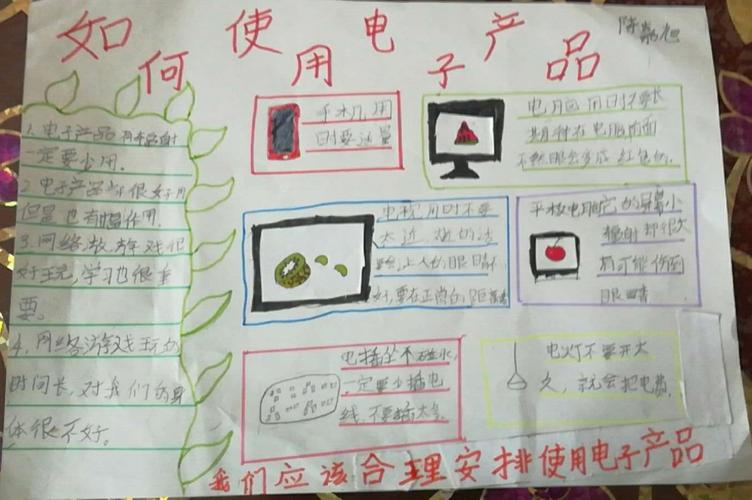 如何使用电子产品
1.电子产品有辐射
一定要少用。
2.电子产品 很好用
但是也有副作用。
3.网络游戏很
好玩,学习也很重
要。
4.网络游戏玩的
时间长,对我们的身
体很不好。
手机用
时要适量
电 用时不要长
期 在电脑前面
不然眼会变成红色的.
电视用时不要
太近,
好,要在正常的距离
平板电脑它的屏幕小
辐射却很大
有可能伤到
眼睛
电插坐不碰水,
一定要少插电
线,不要插太多
电灯不要开太
久,就会把电费
我们应该合理安排使用电子产品